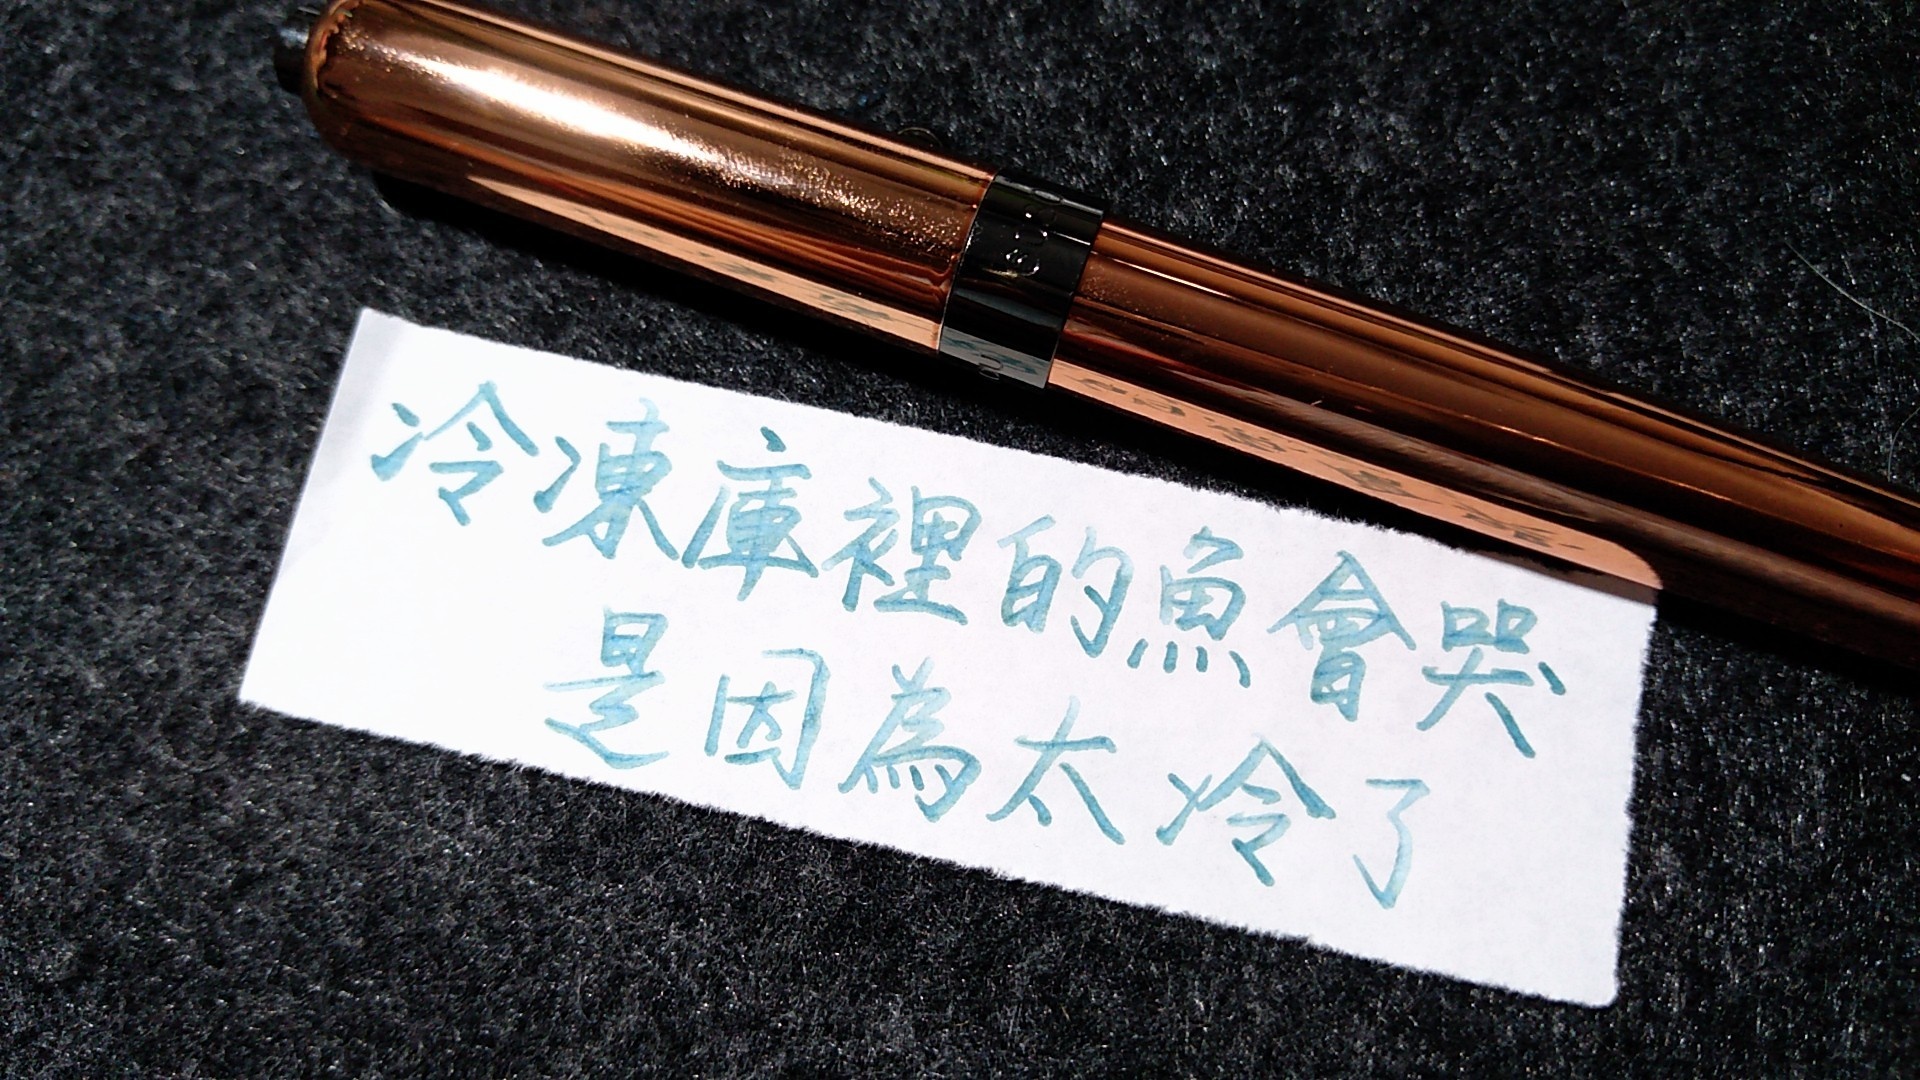 冷凍庫裡的魚會哭
是因為太冷了